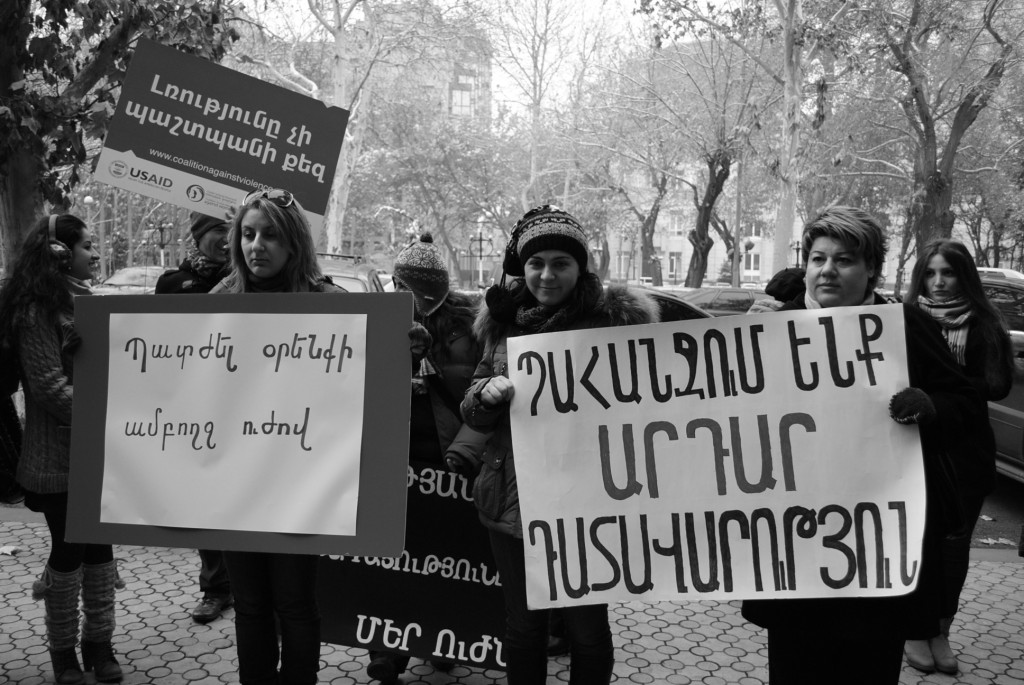 Լռությունը չի
պաշտպանի քեզ
www.coalitionagainstviolence
USAID
Պատժել օրենքի
ամբողջ ուժով
ՊԱՀԱՆՋՈՒՄ ԵՆՔ
ԱՐԴԱՐ
ԴԱՏԱՎԱՐՈՒԹՅՈՒՆ
ՄԵՐ ՈՒԺՆ